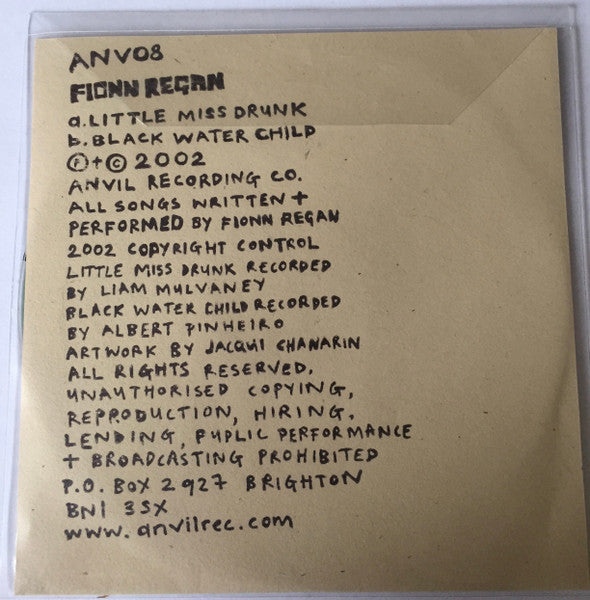 ANV08
FIONN REGAN
a. LITTLE MISS DRUNK
b. BLACK WATER CHILD
Ⓟ+© 2002
ANVIL RECORDING CO.
ALL SONGS WRITTEN +
PERFORMED BY FIONN REGAN
2002 COPYRIGHT CONTROL
LITTLE MISS DRUNK RECORDED
BY LIAM MULVANEY
BLACK WATER CHILD RECORDED
BY ALBERT PINHEIRO
ARTWORK BY JACQUI CHANARIN
ALL RIGHTS RESERVED,
UNAUTHORISED COPYING,
REPRODUCTION, HIRING,
LENDING, PUPLIC PERFORMANCE
+ BROADCASTING PROHIBITED
P.O. BOX 2927 BRIGHTON
BN1 3SX
www.anvilrec.com